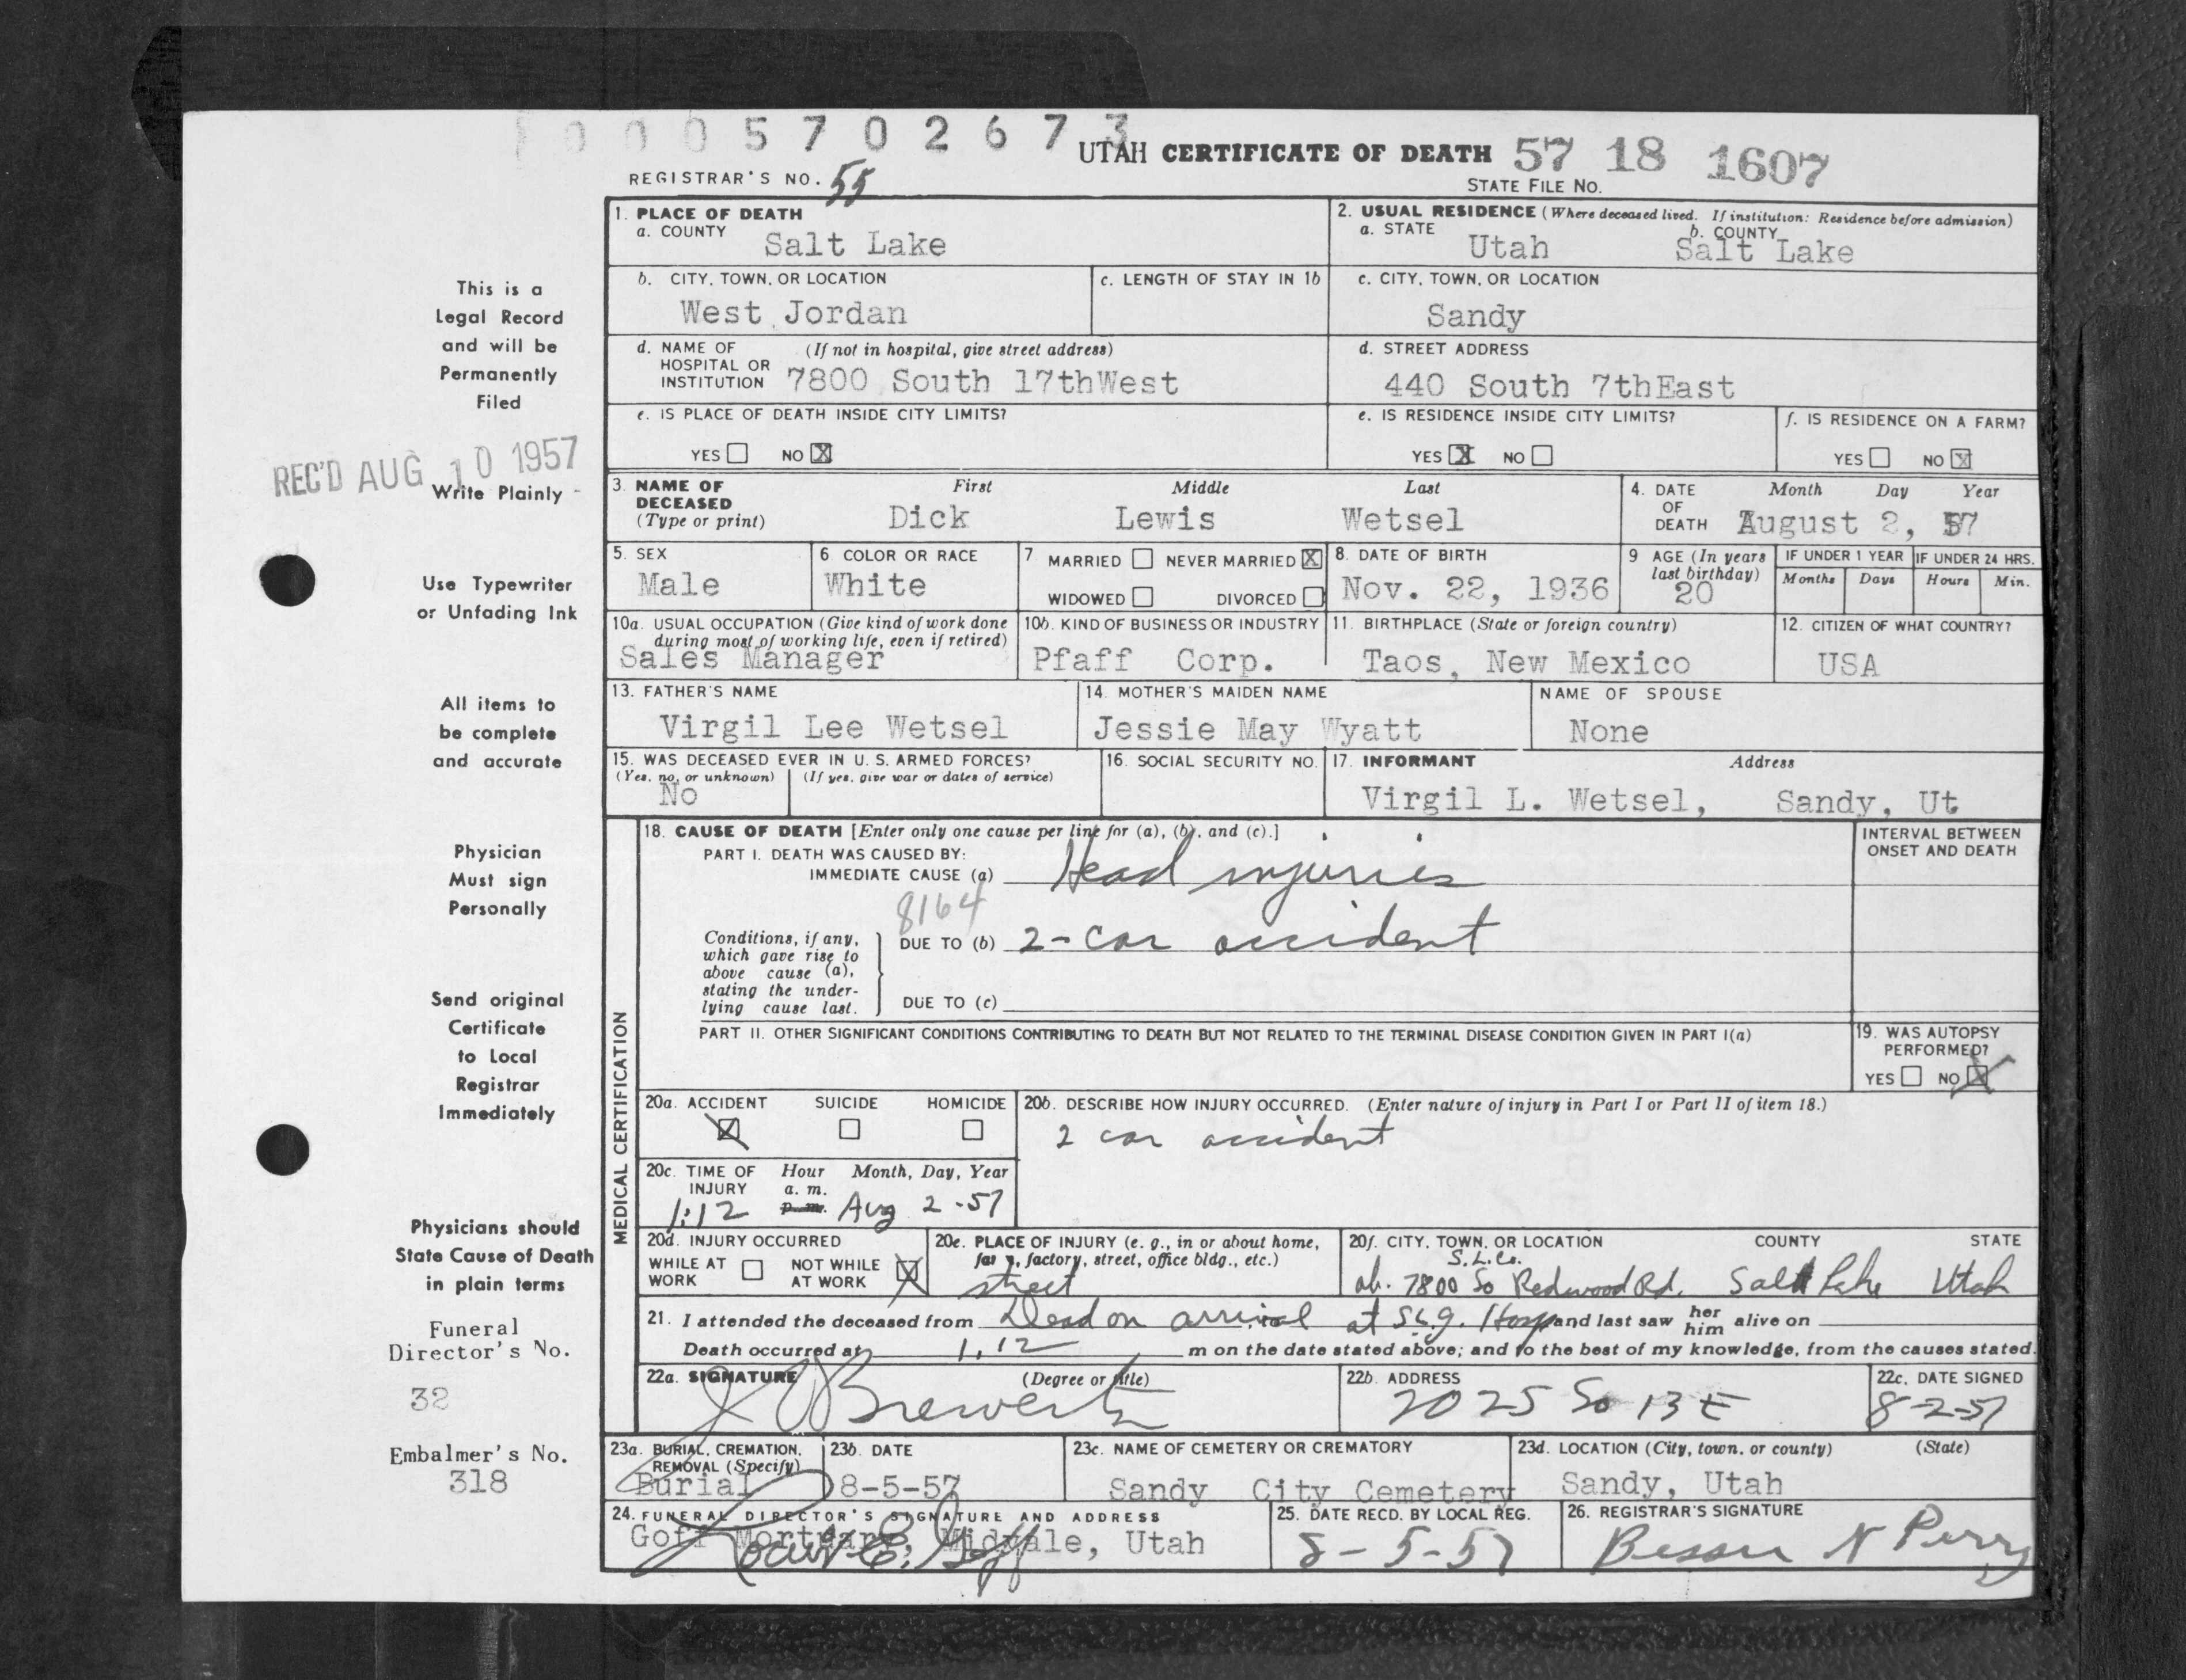 0 0 0 5 7 0 2 6 7 3
UTAH CERTIFICATE OF DEATH 57 18 1607
REGISTRAR'S NO. 55
STATE FILE NO.
This is a
Legal Record
and will be
Permanently
Filed
REC'D AUG 10 1957
Write Plainly -
Use Typewriter
or Unfading Ink
All items to
be complete
and accurate
Physician
Must sign
Personally
Send original
Certificate
to Local
Registrar
Immediately
Physicians should
State Cause of Death
in plain terms
Funeral
Director's No.
32
Embalmer's No.
318
1. PLACE OF DEATH
a. COUNTY Salt Lake
2. USUAL RESIDENCE (Where deceased lived. If institution: Residence before admission)
a. STATE Utah b. COUNTY Salt Lake
b. CITY, TOWN, OR LOCATION
West Jordan
c. LENGTH OF STAY IN 1b
c. CITY, TOWN, OR LOCATION
Sandy
d. NAME OF HOSPITAL OR INSTITUTION (If not in hospital, give street address)
7800 South 17thWest
d. STREET ADDRESS
440 South 7thEast
e. IS PLACE OF DEATH INSIDE CITY LIMITS?
YES NO X
e. IS RESIDENCE INSIDE CITY LIMITS?
YES X NO
f. IS RESIDENCE ON A FARM?
YES NO X
3. NAME OF DECEASED (Type or print)
First Middle Last
Dick Lewis Wetsel
4. DATE OF DEATH Month Day Year
August 2, 57
5. SEX
Male
6 COLOR OR RACE
White
7 MARRIED NEVER MARRIED X
WIDOWED DIVORCED
8. DATE OF BIRTH
Nov. 22, 1936
9 AGE (In years last birthday)
20
IF UNDER 1 YEAR
Months Days
IF UNDER 24 HRS.
Hours Min.
10a. USUAL OCCUPATION (Give kind of work done during most of working life, even if retired)
Sales Manager
10b. KIND OF BUSINESS OR INDUSTRY
Pfaff Corp.
11. BIRTHPLACE (State or foreign country)
Taos, New Mexico
12. CITIZEN OF WHAT COUNTRY?
USA
13. FATHER'S NAME
Virgil Lee Wetsel
14. MOTHER'S MAIDEN NAME
Jessie May Wyatt
NAME OF SPOUSE
None
15. WAS DECEASED EVER IN U. S. ARMED FORCES?
(Yes, no, or unknown) (If yes, give war or dates of service)
No
16. SOCIAL SECURITY NO.
17. INFORMANT Address
Virgil L. Wetsel, Sandy, Ut
MEDICAL CERTIFICATION
18. CAUSE OF DEATH [Enter only one cause per line for (a), (b), and (c).]
PART I. DEATH WAS CAUSED BY:
IMMEDIATE CAUSE (a) Head injuries
8164
Conditions, if any, which gave rise to above cause (a), stating the underlying cause last.
DUE TO (b) 2-car accident
DUE TO (c)
INTERVAL BETWEEN
ONSET AND DEATH
PART II. OTHER SIGNIFICANT CONDITIONS CONTRIBUTING TO DEATH BUT NOT RELATED TO THE TERMINAL DISEASE CONDITION GIVEN IN PART I(a)
19. WAS AUTOPSY PERFORMED?
YES NO X
20a. ACCIDENT SUICIDE HOMICIDE
X
20b. DESCRIBE HOW INJURY OCCURRED. (Enter nature of injury in Part I or Part II of item 18.)
2 car accident
20c. TIME OF INJURY Hour Month, Day, Year
1:12 a. m. p. m. Aug 2-57
20d. INJURY OCCURRED
WHILE AT WORK NOT WHILE AT WORK X
20e. PLACE OF INJURY (e. g., in or about home, farm, factory, street, office bldg., etc.)
street
20f. CITY, TOWN, OR LOCATION COUNTY STATE
S.L.Co.
ab. 7800 So Redwood Rd. Salt Lake Utah
21. I attended the deceased from Dead on arrival at S.L.G. Hosp and last saw her him alive on
Death occurred at 1,12 m on the date stated above; and to the best of my knowledge, from the causes stated.
22a. SIGNATURE (Degree or title)
22b. ADDRESS
2025 So 13 E
22c. DATE SIGNED
8-2-57
23a. BURIAL, CREMATION, REMOVAL (Specify)
Burial
23b. DATE
8-5-57
23c. NAME OF CEMETERY OR CREMATORY
Sandy City Cemetery
23d. LOCATION (City, town, or county) (State)
Sandy, Utah
24. FUNERAL DIRECTOR'S SIGNATURE AND ADDRESS
Goff Mortuary, Midvale, Utah
25. DATE RECD. BY LOCAL REG.
8-5-57
26. REGISTRAR'S SIGNATURE
Bessie N Perry